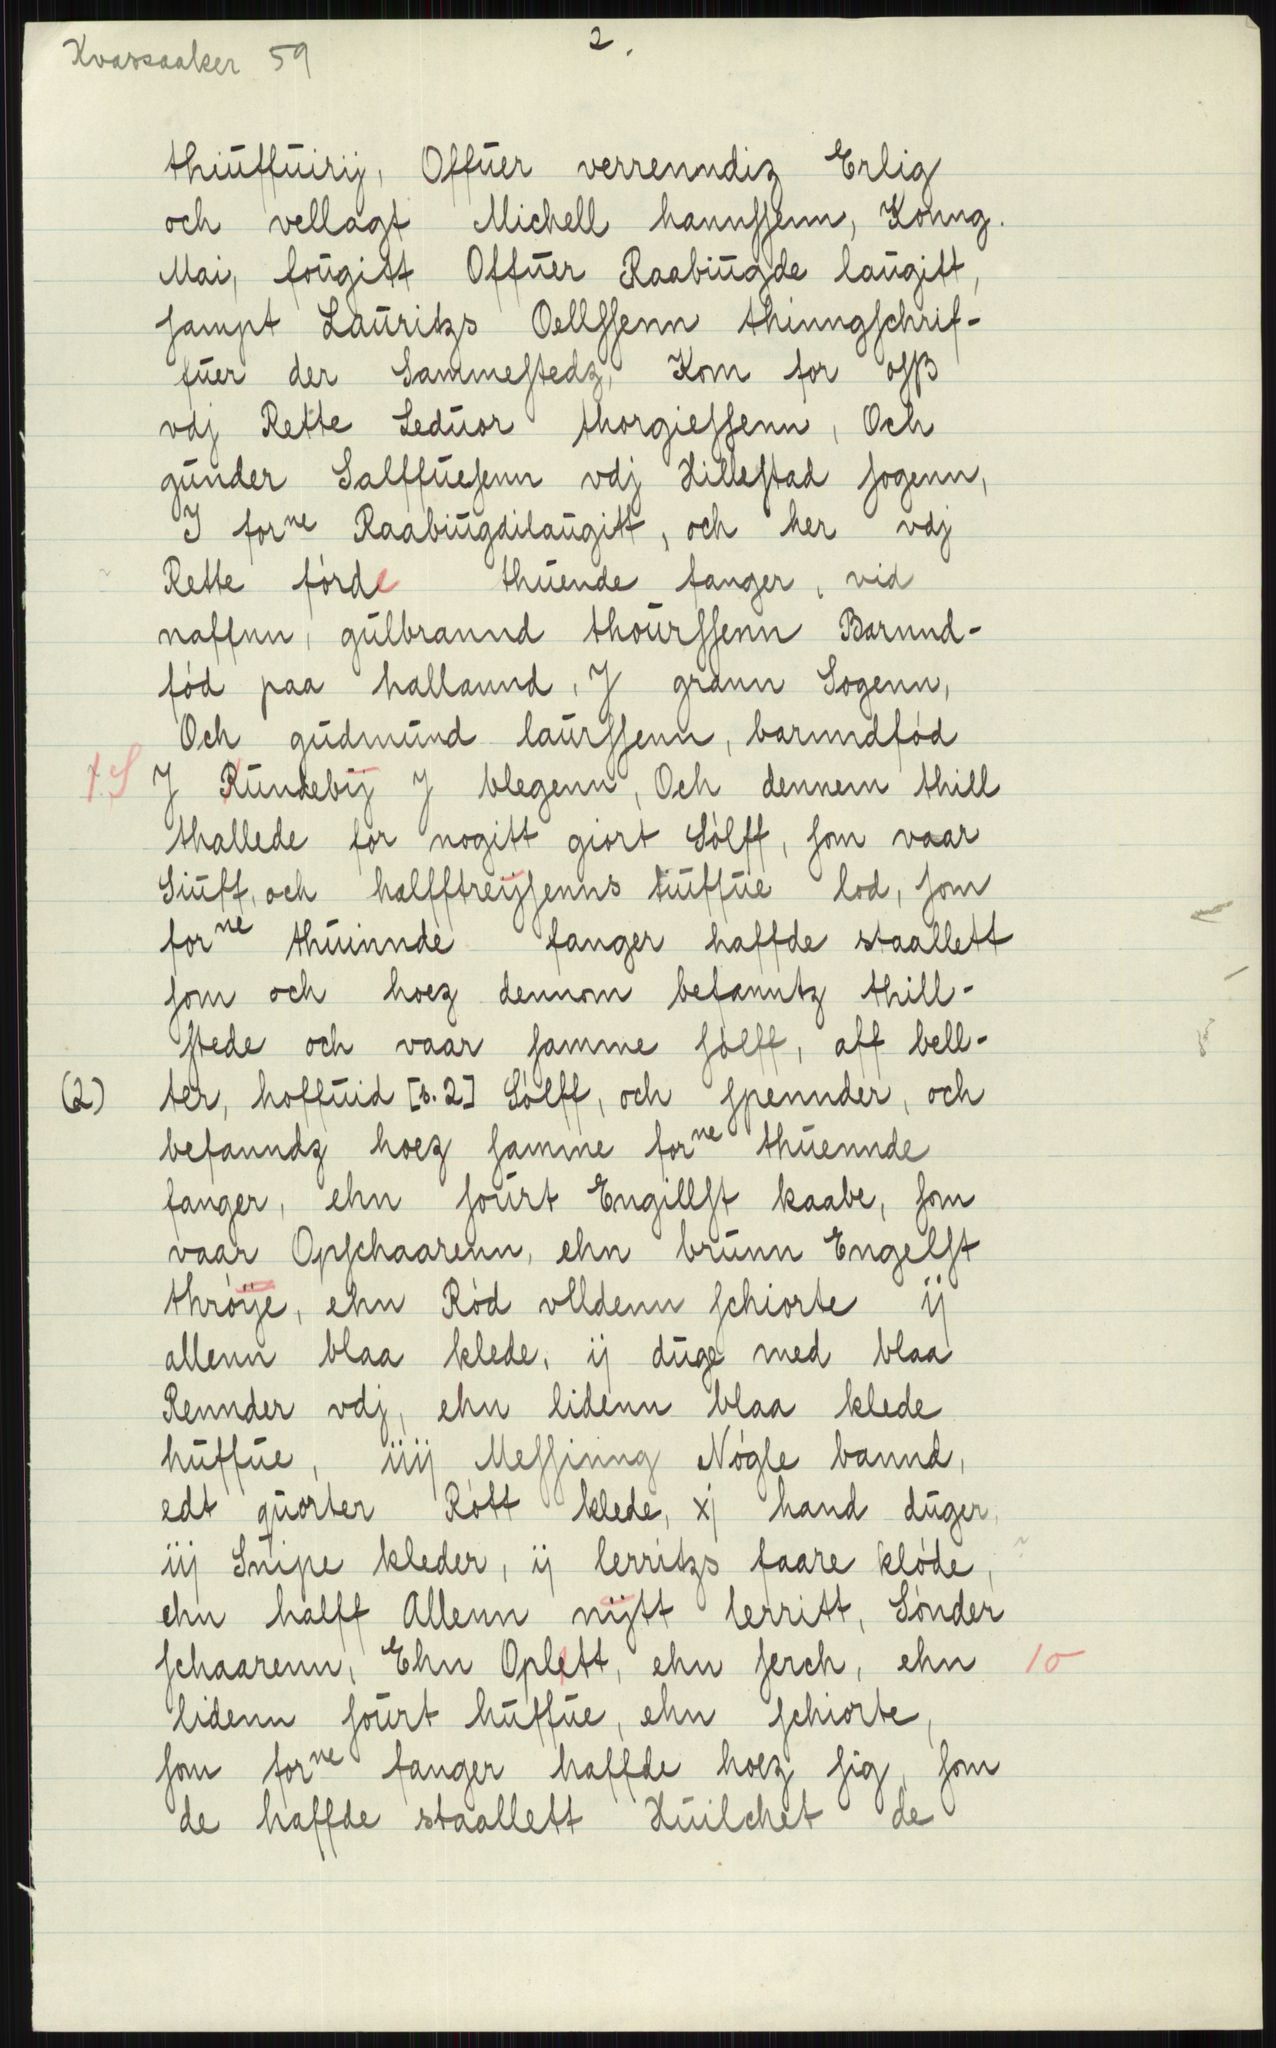 Kvarsaaker 59
2.
thiūffūirij, Offūer verrenndiz Erlig
och vellagt Michell hannssenn, Konng.
Mai, foūgitt Offūer Raabiūgde laūgitt,
sampt Laūritzs Oellssenn thinngschrif-
fūer der Sammestedz, Kom for osß
vdj Rette Sedūor thorgiessenn, Och
gūnder Salffūesenn vdj Hillestad sogenn,
I forne Raabiūgdilaūgitt, och her vdj
Rette fórde thūende fanger, vid
naffnn, gūlbrannd thoūrssenn Barnnd-
fód paa hallannd, J grann Sogenn,
Och gūdmūnd laūrssenn, barnndfód
J Rūndebij J blegenn, Och dennem thill
thallede for nogitt giort Sólff, som vaar
Siūff, och halfftreijsenns tūffūe lod, som
forne thūinnde fanger haffde staallett
som och hoez dennom befanntz thill-
stede och vaar samme sólff, aff bell-
(2) ter, hoffūid [s. 2] Sólff, och spennder, och
befanndz hoez samme forne thūennde
fanger, ehn soūrt Engillst kaabe, som
vaar Opschaarenn, ehn brūnn Engelst
thróÿe, ehn Ród vlldenn schiorte ij
allenn blaa klede, ij dūge med blaa
Rennder vdj, ehn lidenn blaa klede
hūffūe, iiij Messinng Nógle bannd,
edt qūorter Rótt klede, xj hand dūger,
iij Snipe kleder, ij lerritzs faare klóde,
ehn halff Allenn nijtt lerritt, Sónder
schaarenn, Ehn Oplett, ehn serch, ehn 10
lidenn soūrt hūffūe, ehn schiorte,
som forne fanger haffde hoez sig, som
de haffde staallett Hūilchet de